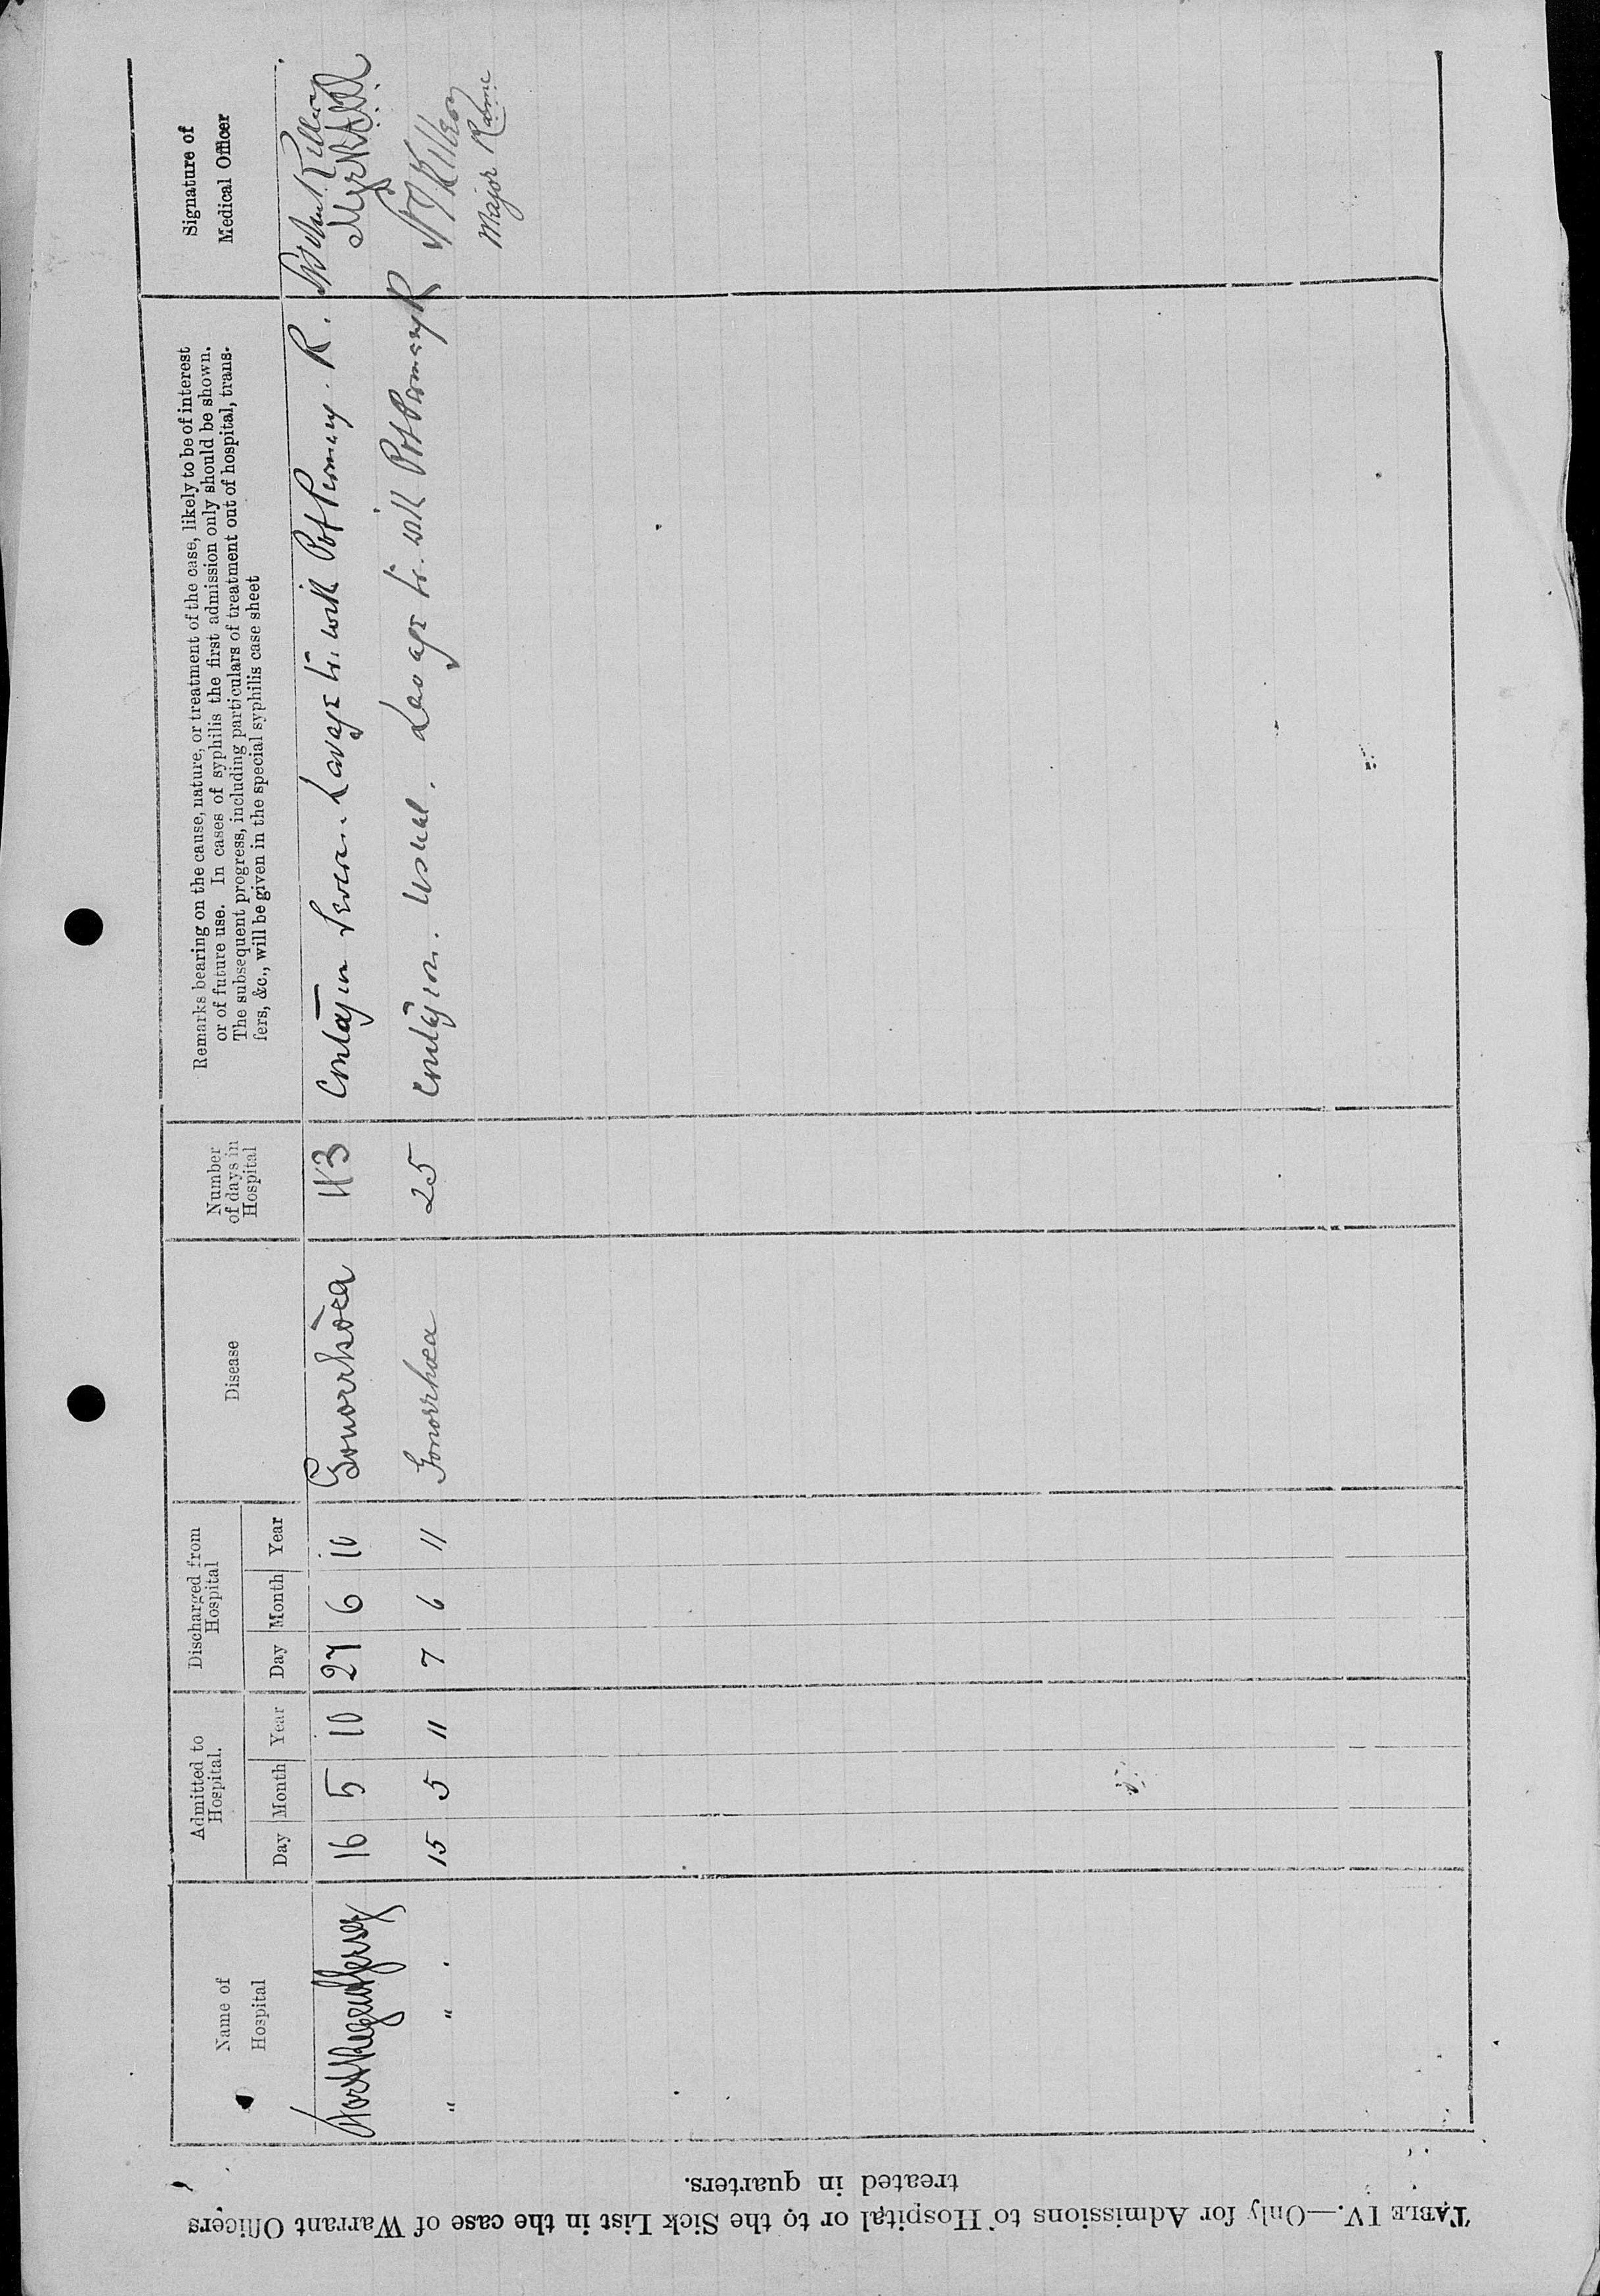 TABLE IV.—Only for Admissions to Hospital or to the Sick List in the case of Warrant Officers
treated in quarters.
Name of
Hospital
Admitted to
Hospital.
Day Month Year
Discharged from
Hospital
Day Month Year
Disease
Number
of days in
Hospital
Remarks bearing on the cause, nature, or treatment of the case, likely to be of interest
or of future use. In cases of syphilis the first admission only should be shown.
The subsequent progress, including particulars of treatment out of hospital, trans-
fers, &c., will be given in the special syphilis case sheet
Signature of
Medical Officer
16 5 10 27 6 10 Gonorrhoea 43 Contagion Severe. Lavage tr. with Pot Permang. R.
" " 15 5 11 7 6 11 Gonorrhoea 25 Contagion. Usual. Lavage tr. with Pot Permang R
Major Ramc